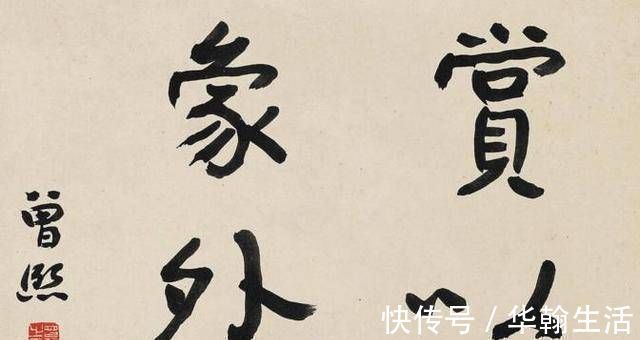 賞以
象外
曾熙
快传号 / 华翰生活